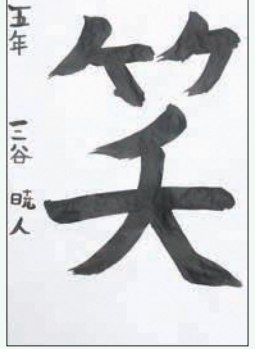 笑
五年 三谷 暁人